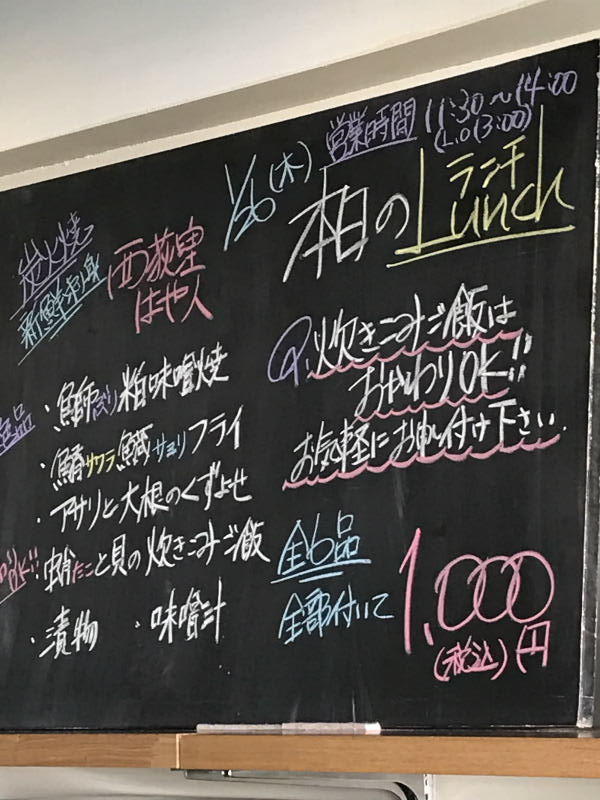 営業時間 11:30〜14:00
(L.O 13:00)
1/26(木)
本日のLunch
ランチ
炭火焼
新鮮刺身
西荻窪
はや人
・鰤ぶり粕味噌焼
・鰆サワラ鱵サヨリフライ
・アサリと大根のくずよせ
蛸たこと貝の炊きこみご飯
・漬物 ・味噌汁
炊きこみご飯は
おかわりOK!!
お気軽にお申し付け下さい
全6品
全部付いて
1,000円
(税込)